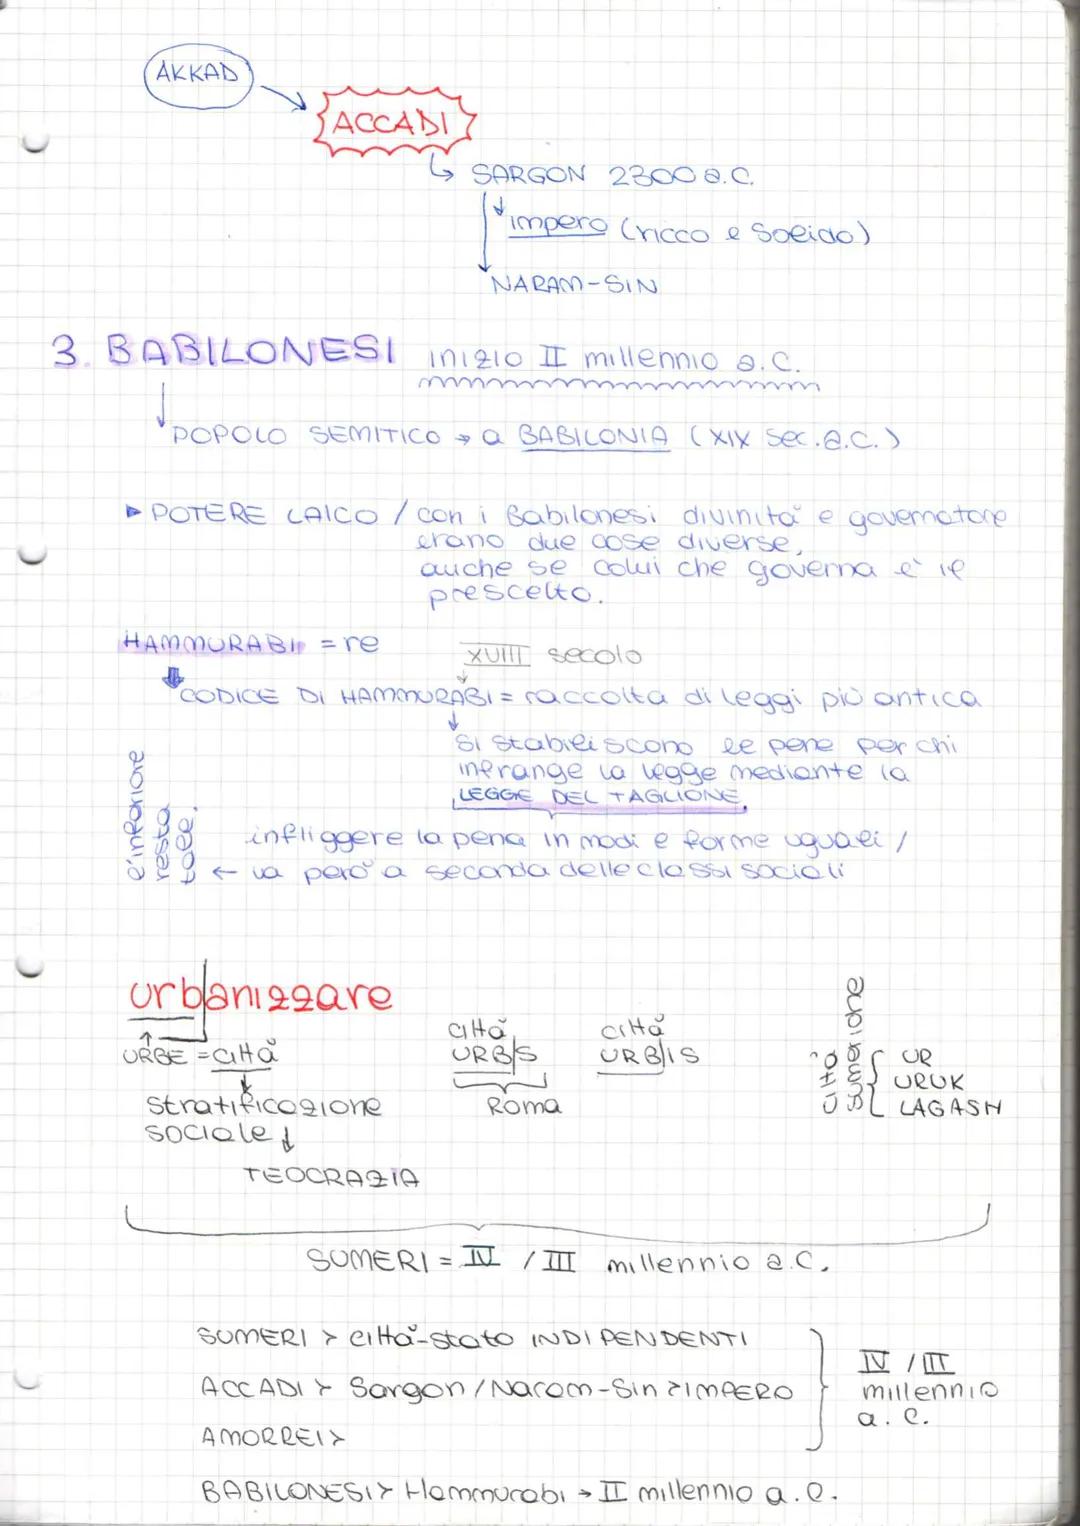 AKKAD
ACCADI
SARGON 2300 a.C.
impero (ricco e solido)
NARAM-SIN
3. BABILONESI inizio II millennio a.C.
POPOLO SEMITICO → a BABILONIA (XIX sec. a.C.)
▶ POTERE LAICO / con i Babilonesi divinità e governatore
erano due cose diverse,
anche se colui che governa è il
prescelto.
HAMMURABI = re
XVIII secolo
CODICE DI HAMMURABI = raccolta di leggi più antica
si stabiliscono le pene per chi
infrange la legge mediante la
LEGGE DEL TAGLIONE.
infliggere la pena in modi e forme uguali /
← va però a seconda delle classi sociali
resta
tale.
urbanizzare
URBE = città
stratificazione
sociale ↓
TEOCRAZIA
città
URB/S
Roma
città
URB/IS
città
sumeriche
UR
URUK
LAGASH
SUMERI = IV / III millennio a.C.
SUMERI > città-stato INDIPENDENTI
ACCADI > Sargon/Naram-Sin > IMPERO
AMORREI >
IV / III
millennio
a.C.
BABILONESI > Hammurabi → II millennio a.C.